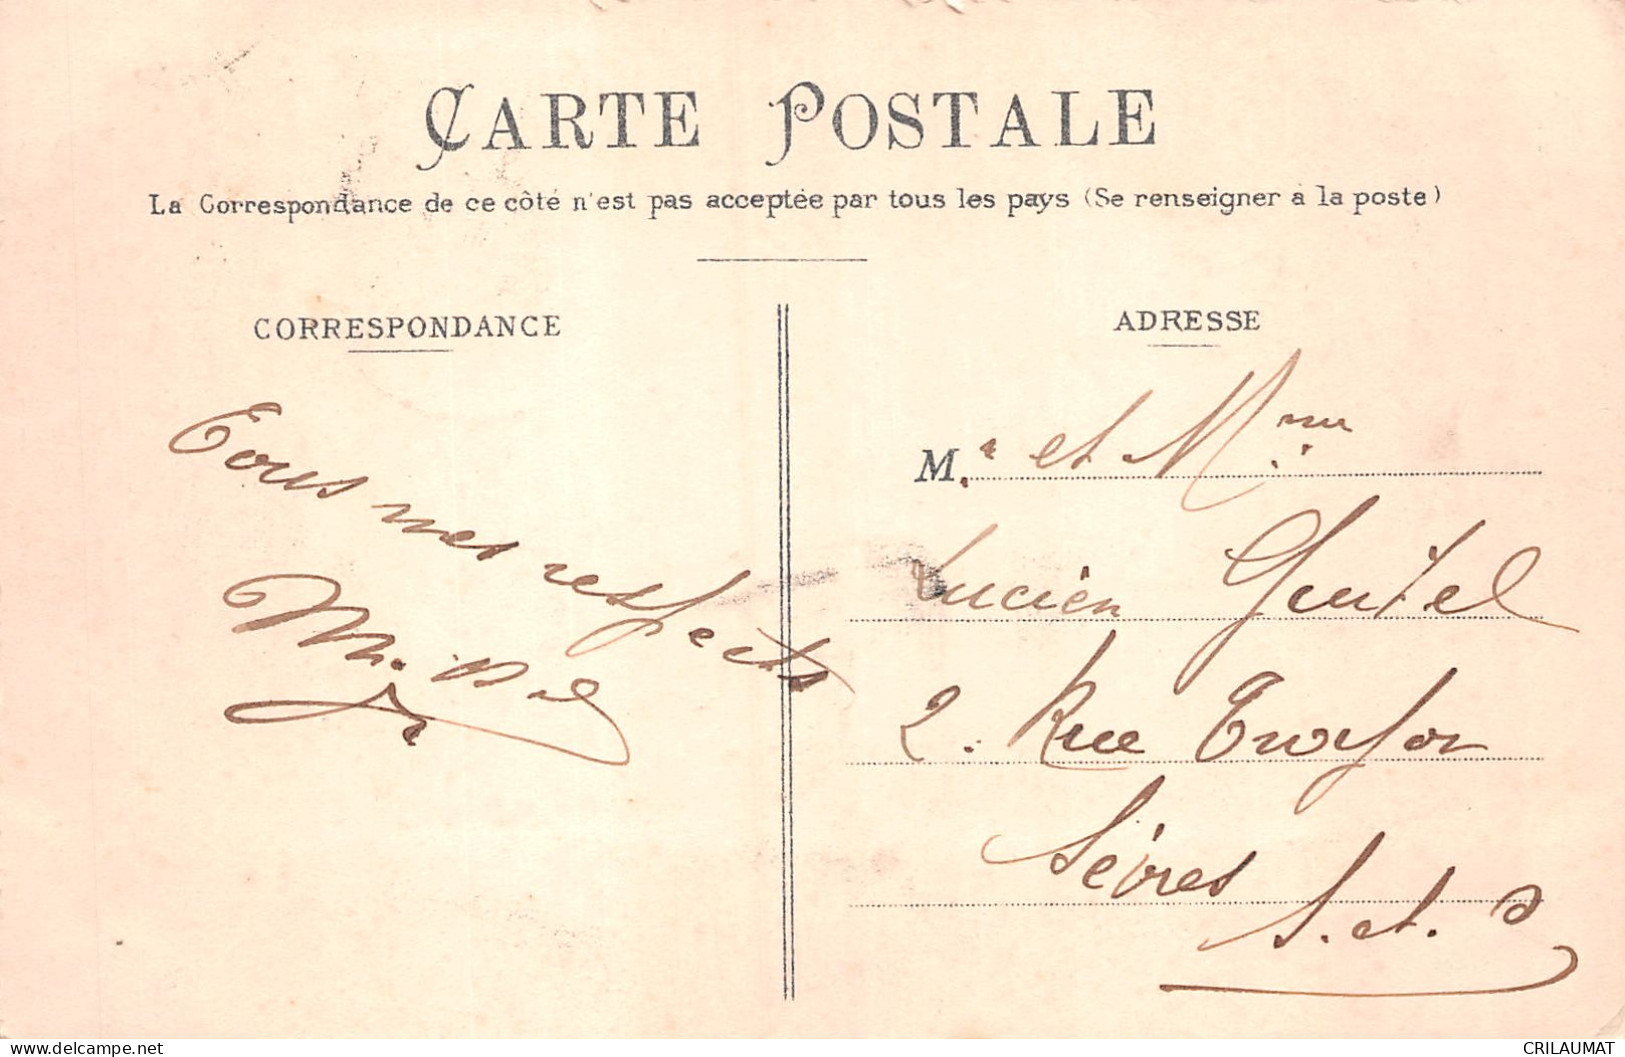 CARTE POSTALE
La Correspondance de ce côté n'est pas acceptée par tous les pays (Se renseigner à la poste)
CORRESPONDANCE
Tous mes respects
ADRESSE
M.r et Mme
Lucien Gentel
2. Rue Troyon
Sèvres
S. et. O
www.delcampe.net
CRILAUMAT